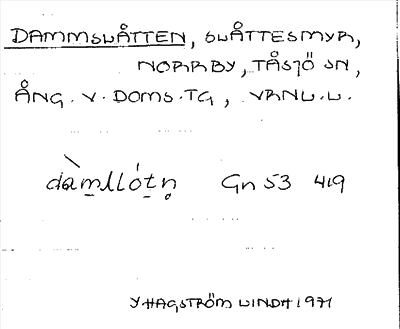 DAMMSLÅTTEN, SLÅTTESMYR,
NORRBY, TÅSJÖ SN,
ÅNG. V. DOMS. TG, VRNL.L.
dàm̱llót̠n̥ Gn 53 419
Y HAGSTRÖM LINDH 1971